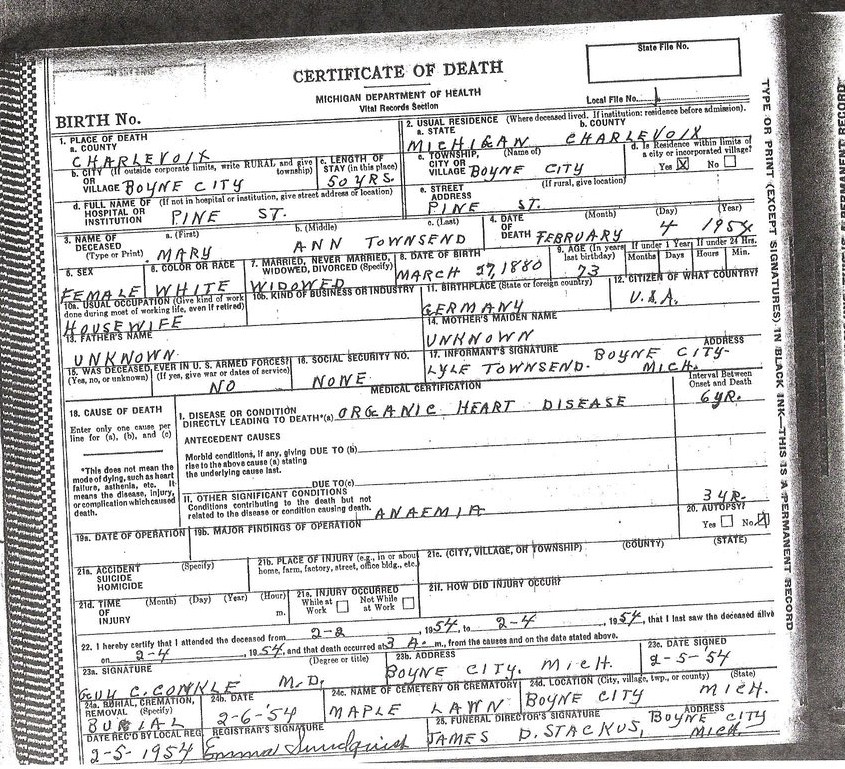 State File No.
CERTIFICATE OF DEATH
MICHIGAN DEPARTMENT OF HEALTH
Vital Records Section
Local File No.
BIRTH No.
1. PLACE OF DEATH
a. COUNTY
CHARLEVOIX
b. CITY (If outside corporate limits, write RURAL and give township)
OR
VILLAGE BOYNE CITY
c. LENGTH OF
STAY (in this place)
50 YRS.
d. FULL NAME OF (If not in hospital or institution, give street address or location)
HOSPITAL OR
INSTITUTION PINE ST.
2. USUAL RESIDENCE (Where deceased lived. If institution: residence before admission).
a. STATE b. COUNTY
MICHIGAN CHARLEVOIX
c. TOWNSHIP, (Name of)
CITY OR
VILLAGE BOYNE CITY
d. Is Residence within limits of
a city or incorporated village?
Yes X No
e. STREET (If rural, give location)
ADDRESS
PINE ST.
3. NAME OF
DECEASED
(Type or Print)
a. (First) b. (Middle) c. (Last)
MARY ANN TOWNSEND
4. DATE (Month) (Day) (Year)
OF
DEATH FEBRUARY 4 1954
5. SEX
FEMALE
6. COLOR OR RACE
WHITE
7. MARRIED, NEVER MARRIED,
WIDOWED, DIVORCED (Specify)
WIDOWED
8. DATE OF BIRTH
MARCH 27, 1880
9. AGE (In years
last birthday)
73
If under 1 Year If under 24 Hrs.
Months Days Hours Min.
10a. USUAL OCCUPATION (Give kind of work
done during most of working life, even if retired)
HOUSEWIFE
10b. KIND OF BUSINESS OR INDUSTRY
11. BIRTHPLACE (State or foreign country)
GERMANY
12. CITIZEN OF WHAT COUNTRY?
U.S.A.
13. FATHER'S NAME
UNKNOWN
14. MOTHER'S MAIDEN NAME
UNKNOWN
15. WAS DECEASED EVER IN U. S. ARMED FORCES?
(Yes, no, or unknown) (If yes, give war or dates of service)
NO
16. SOCIAL SECURITY NO.
NONE
17. INFORMANT'S SIGNATURE ADDRESS
LYLE TOWNSEND. BOYNE CITY-
MICH.
MEDICAL CERTIFICATION
Interval Between
Onset and Death
18. CAUSE OF DEATH
Enter only one cause per
line for (a), (b), and (c)
*This does not mean the
mode of dying, such as heart
failure, asthenia, etc. It
means the disease, injury,
or complication which caused
death.
I. DISEASE OR CONDITION
DIRECTLY LEADING TO DEATH*(a) ORGANIC HEART DISEASE
6 YR.
ANTECEDENT CAUSES
Morbid conditions, if any, giving DUE TO (b)
rise to the above cause (a) stating
the underlying cause last.
DUE TO (c)
II. OTHER SIGNIFICANT CONDITIONS
Conditions contributing to the death but not
related to the disease or condition causing death. ANAEMIA
3 YR.
19a. DATE OF OPERATION
19b. MAJOR FINDINGS OF OPERATION
20. AUTOPSY?
Yes No
21a. ACCIDENT (Specify)
SUICIDE
HOMICIDE
21b. PLACE OF INJURY (e.g., in or about
home, farm, factory, street, office bldg., etc.)
21c. (CITY, VILLAGE, OR TOWNSHIP) (COUNTY) (STATE)
21d. TIME (Month) (Day) (Year) (Hour)
OF
INJURY m.
21e. INJURY OCCURRED
While at Not While
Work at Work
21f. HOW DID INJURY OCCUR?
22. I hereby certify that I attended the deceased from 2-2, 1954, to 2-4, 1954, that I last saw the deceased alive
on 2-4, 1954, and that death occurred at 3 A. m., from the causes and on the date stated above.
23a. SIGNATURE (Degree or title)
GUY C. CONKLE M.D.
23b. ADDRESS
BOYNE CITY. MICH.
23c. DATE SIGNED
2-5-'54
24a. BURIAL, CREMATION,
REMOVAL (Specify)
BURIAL
24b. DATE
2-6-'54
24c. NAME OF CEMETERY OR CREMATORY
MAPLE LAWN
24d. LOCATION (City, village, twp., or county) (State)
BOYNE CITY MICH.
DATE REC'D BY LOCAL REG.
2-5-1954
REGISTRAR'S SIGNATURE
Emma Sundquist
25. FUNERAL DIRECTOR'S SIGNATURE ADDRESS
JAMES D. STACKUS, BOYNE CITY
MICH.
TYPE OR PRINT (EXCEPT SIGNATURES) IN BLACK INK—THIS IS A PERMANENT RECORD